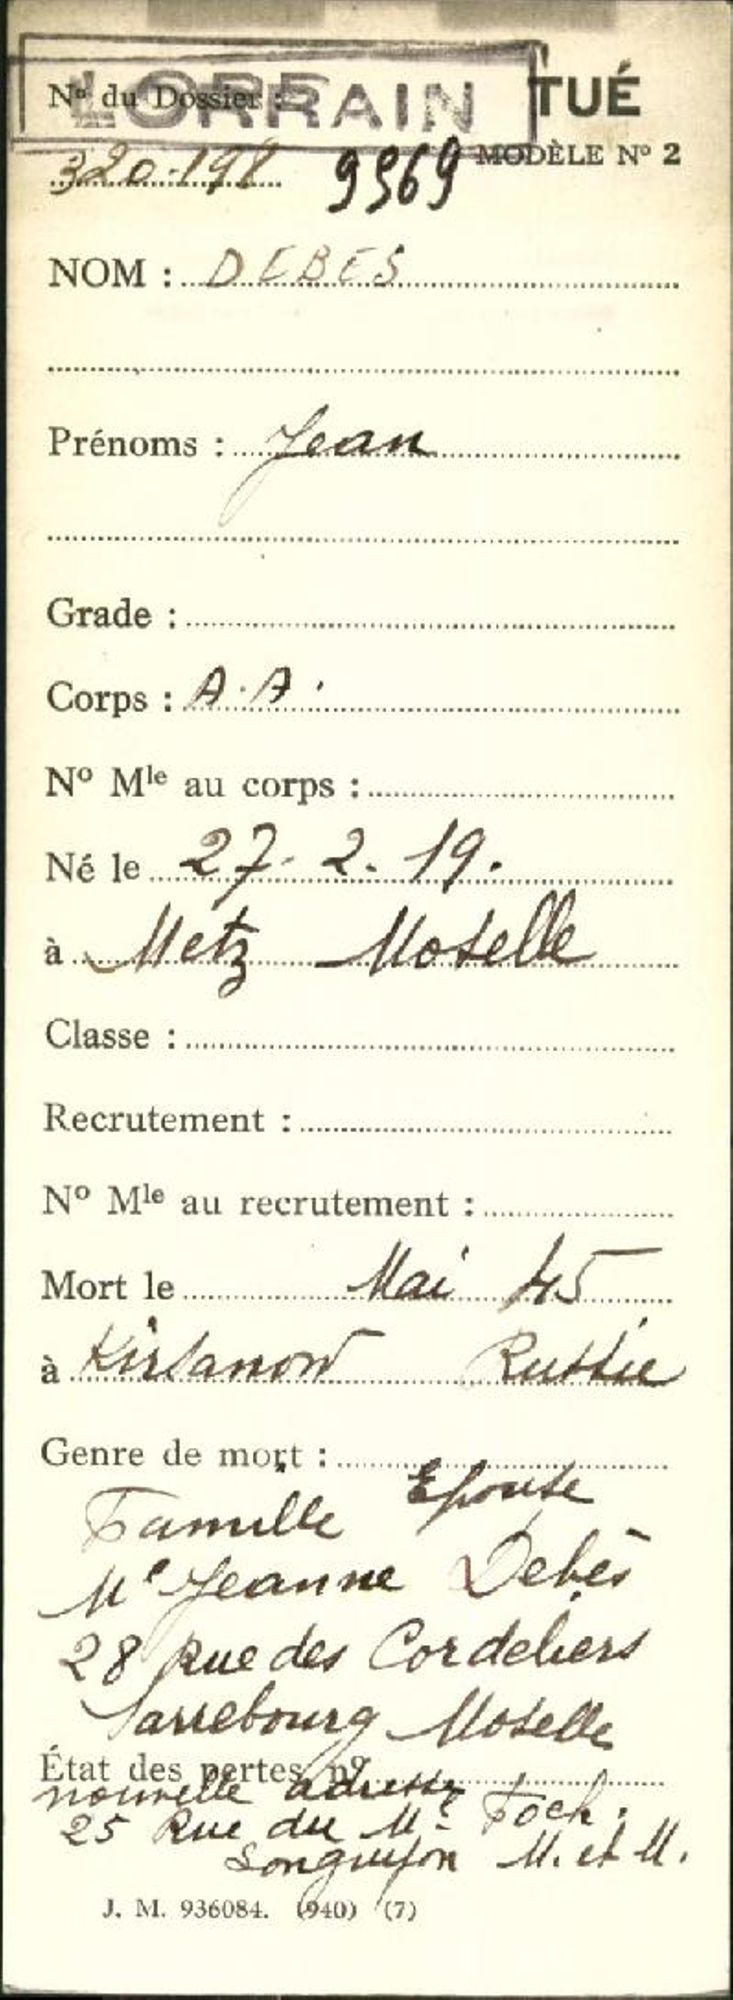 LORRAIN TUÉ
Nº du Dossier :
MODÈLE Nº 2
320-198 9969
NOM : DEBES
Prénoms : Jean
Grade :
Corps : A.A.
Nº Mle au corps :
Né le 27. 2. 19.
à Metz Moselle
Classe :
Recrutement :
Nº Mle au recrutement :
Mort le Mai 45
à Kirsanow Russie
Genre de mort :
Famille Epouse
Me Jeanne Debès
28 Rue des Cordeliers
Sarrebourg Moselle
État des pertes nº
nouvelle adresse
25 Rue du Ml Foch.
Longuyon M. et M.
J. M. 936084. (940) (7)